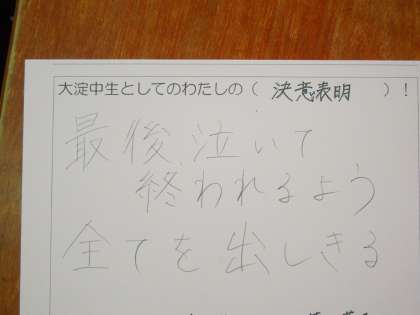 大淀中生としてのわたしの（ 決意表明 ）！
最後、泣いて
終われるよう
全てを出しきる